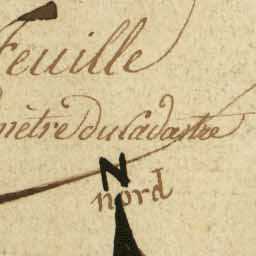 Feuille
mètre du Cadastre
N
nord